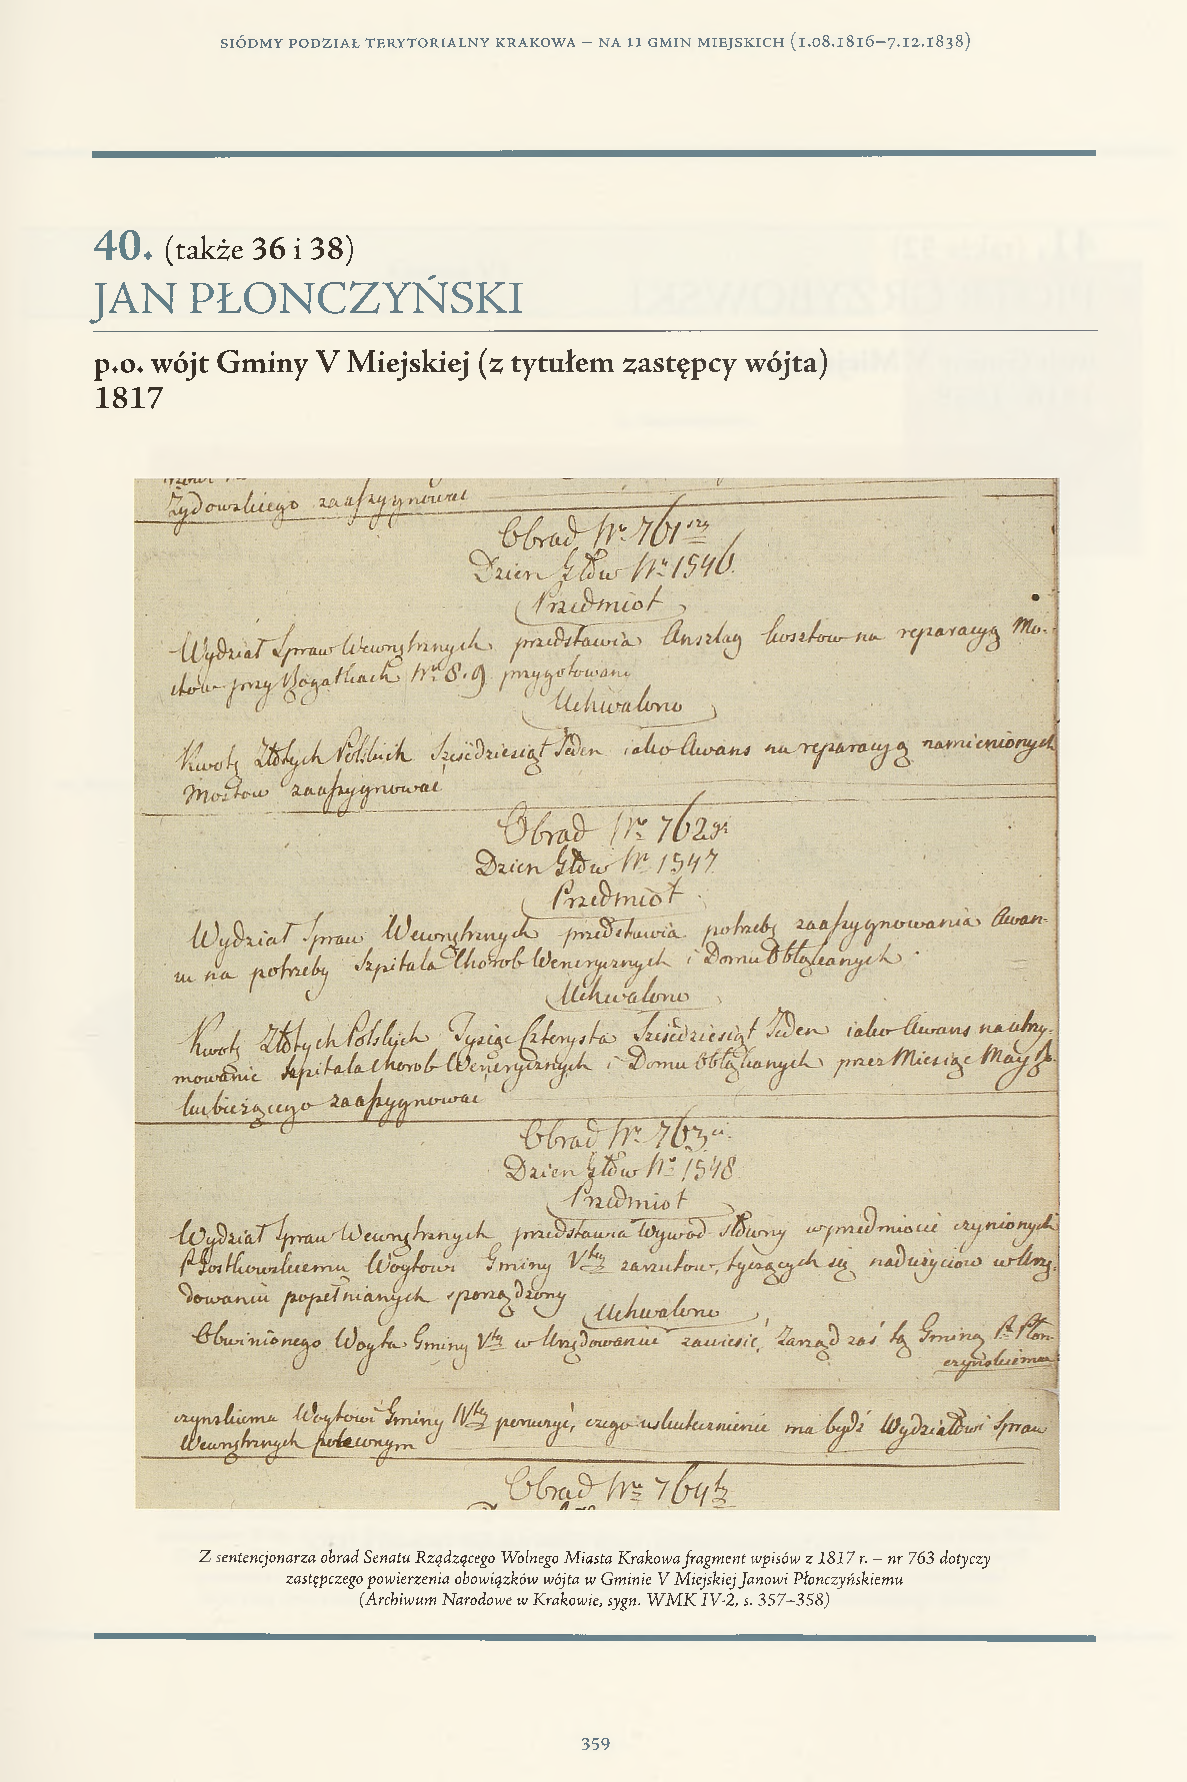 SIÓDMY PODZIAŁ TERYTORIALNY KRAKOWA – NA 11 GMIN MIEJSKICH (1.08.1816–7.12.1838)
40. (także 36 i 38)
JAN PŁONCZYŃSKI
p.o. wójt Gminy V Miejskiej (z tytułem zastępcy wójta)
1817
Żydowskiego zaassygnować
Obrad Nr 761szy
Dzien: Głów Nr 1546.
Przedmiot
Wydział Spraw Wewnętrznych przedstawia Anszlag kosztow na reparacyą Mo-
stów przy Rogatkach Nr 8. 9 przygotowany
Uchwalono
Kwotę Złotych Polskich Sześćdziesiąt Jeden jako Awans na reparacyą namienionych
Mostow zaassygnować
Obrad Nr 762gi
Dzien Głów Nr 1547
Przedmiot
Wydział Spraw Wewnętrznych przedstawia potrzebę zaassygnowania Awan-
su na potrzeby Szpitala Chorob Wenerycznych i Domu Obłąkanych
Uchwalono
Kwotę Złotych Polskich Tysiąc Czterysta Sześćdziesiąt Jeden jako Awans na utrzy-
mowanie Szpitala Chorob Wenerycznych i Domu Obłąkanych przez Miesiąc May
zaassygnować
Obrad Nr 763ci
Dzien Głów Nr 1548
Przedmiot
Wydział Spraw Wewnętrznych przedstawia Wywod słowny w przedmiocie czynionych
Wóytowi Gminy Vtey zarzutow, tyczących się nadużyciow w Urzę-
dowaniu popełnianych sporządzony
Uchwalono
Obwinionego Woyta Gminy Vtey w Urzędowaniu zawiesić, Zarząd zaś tą Gminą P. Płon-
czyńskiemu
czynskiemu Woytowi Gminy IVtey poruczyć, czego uskutecznienie ma bydź Wydziałowi Spraw
Wewnętrznych poleconym
Obrad Nr 764ty
Z sentencjonarza obrad Senatu Rządzącego Wolnego Miasta Krakowa fragment wpisów z 1817 r. – nr 763 dotyczy
zastępczego powierzenia obowiązków wójta w Gminie V Miejskiej Janowi Płonczyńskiemu
(Archiwum Narodowe w Krakowie, sygn. WMK IV-2, s. 357–358)
359